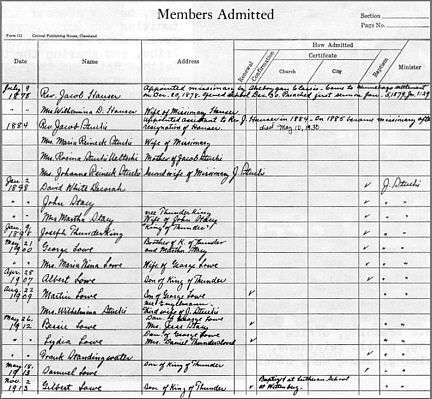 Members Admitted
Section
Page No.
Form 111 Central Publishing House, Cleveland
How Admitted
Certificate
Date Name Addresses Renewal Confirmation Church City Baptism Minister
July 9 1878 Rev. Jacob Hauser Appointed missionary by Sheboygan Classis. Came to Winnebago settlement
on Dec. 20, 1878. Opened school Dec. 30. Preached first sermon Jan. 1879
" " Mrs. Wilhemina D. Hauser Wife of Missionary Hauser
1884 Rev. Jacob Stucki appointed assistant to Rev. J. Hauser in 1884. In 1885 became missionary after
resignation of Hauser. died May 10, 1930
Mrs. Maria Reineck Stucki Wife of Missionary
Mrs. Rosina Stucki Mother of Jacob Stucki
Mrs. Johanna Reineck Stucki Second wife of Missionary J. Stucki
Jan. 2 1898 David White Decorah ✓ J. Stucki
" " John Stacy ✓ " "
" " Mrs Martha Stacy nee Thunder King
Wife of John Stacy ✓ " "
Jan. 9, 1898 Joseph Thunder King "King of Thunder" ✓ " "
May 21 1900 George Lowe Brother of K. of Thunder
and Martha Stacy ✓ " "
" " Mrs. Maria Nina Lowe Wife of George Lowe ✓ " "
Apr. 28 1907 Albert Lowe Son of King of Thunder ✓ " "
Aug. 22 1909 Martin Lowe Son of George Lowe ✓ " "
Mrs. Wilhelmina Stucki
Third wife of J. Stucki
May 26, 1912 Bessie Lowe Dau. of George Lowe
Mrs. Jesse Stacy ✓ " "
" " Lydia Lowe Dau. of George Lowe
Mrs. Daniel Thundercloud ✓ " "
" " Frank Standingwater ✓ " "
May 18, 1913 Samuel Lowe Son of King of Thunder ✓ " "
Nov. 2 1913 Gilbert Lowe Son of King of Thunder ✓ Baptized at Lutheran School
at Wittenberg. " "